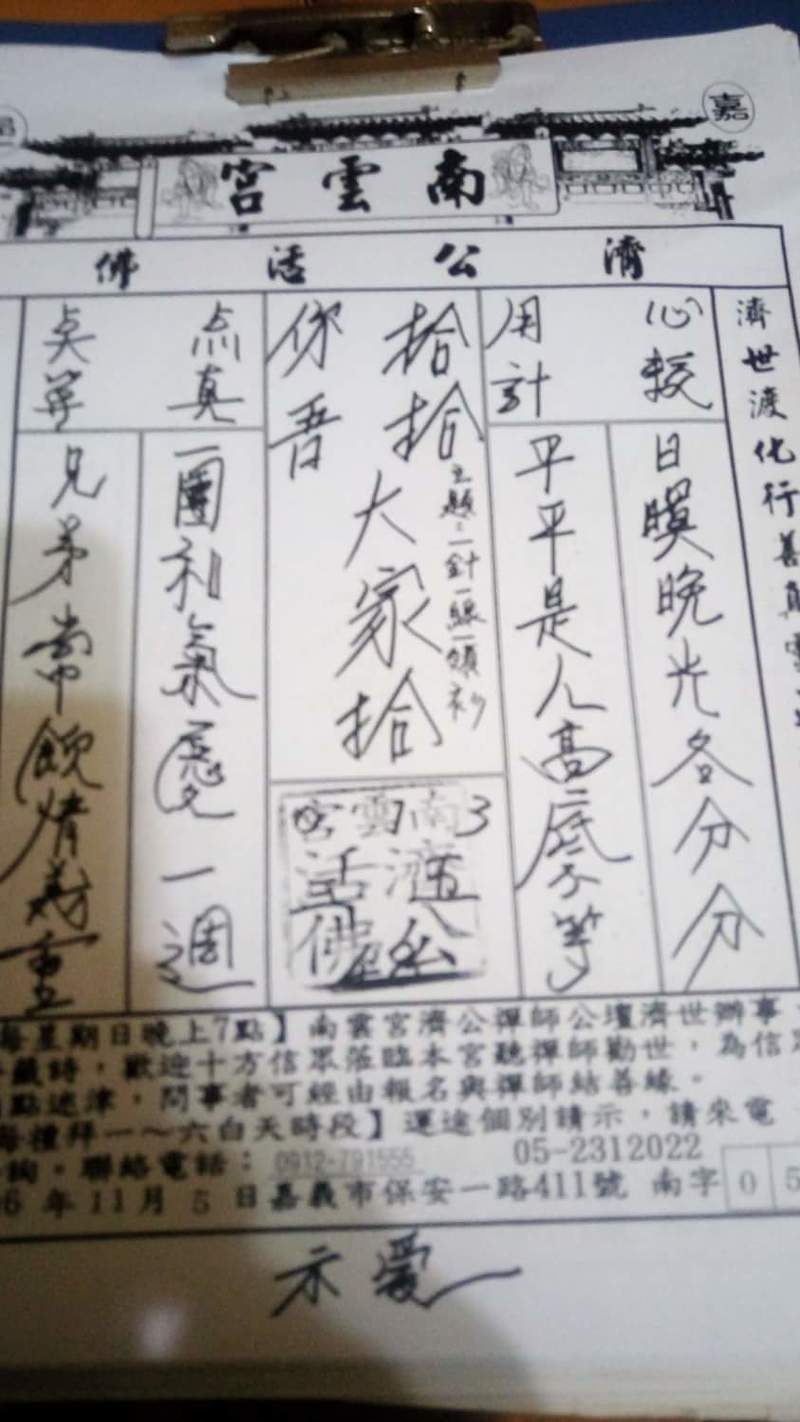 嘉
南雲宮
濟公活佛
濟世渡化行善真
心
日 晚光各分分
用計
平平是人高底不等
拾拾大家拾
主題：一針一線一領衫
你吾
点真
一團和氣 一週
兄弟常飲情義重
南雲宮
濟公活佛
每星期日晚上7點】南雲宮濟公禪師公壇濟世辦事，
籤詩，歡迎十方信眾蒞臨本宮聽禪師勸世，為信眾
點迷津，問事者可經由報名與禪師結善緣。
每禮拜一～六白天時段】運途個別請示，請來電
詢。聯絡電話：0912-791555 05-2312022
6 年 11 月 5 日嘉義市保安一路411號 南字 0 5
示愛